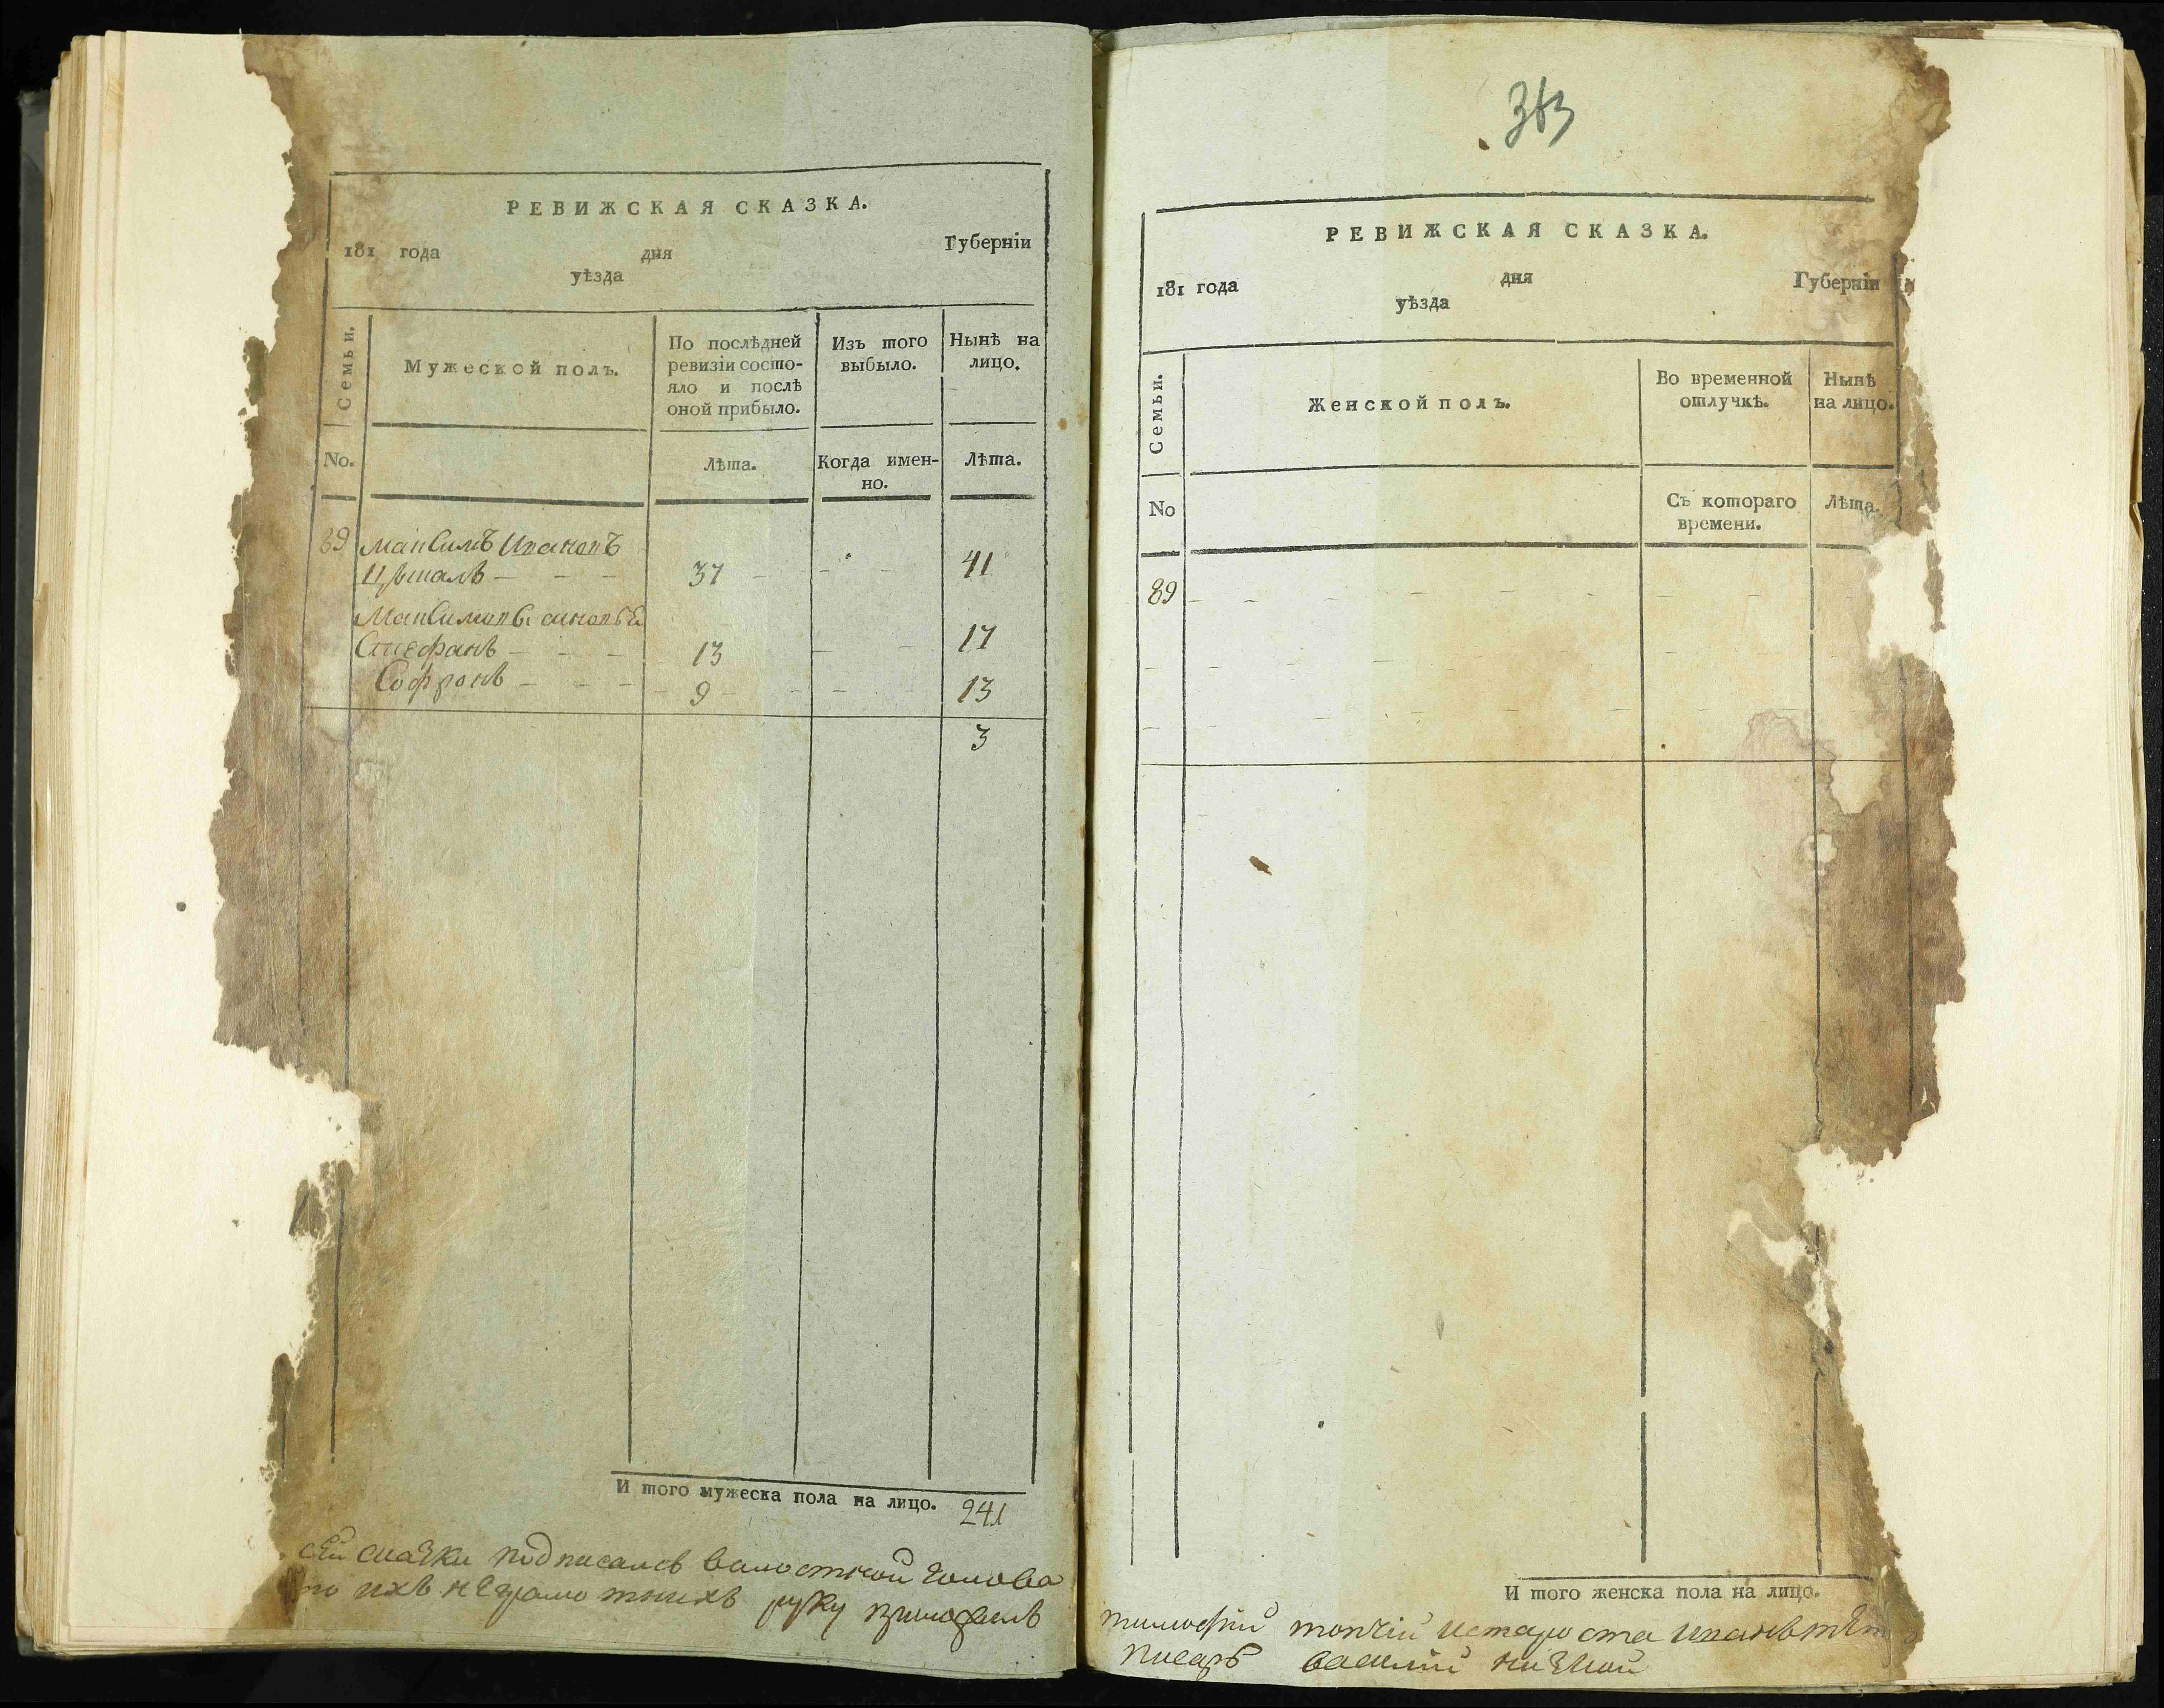 РЕВИЖСКАЯ СКАЗКА.
181 года дня Губерніи
уѣзда
Семьи.
Мужеской полъ.
По послѣдней ревизіи состо-яло и послѣ оной прибыло.
Изъ того выбыло.
Нынѣ на лицо.
No.
Лѣта.
Когда имен-но.
Лѣта.
89 Максимъ Ивановъ
37 41
Максимовы сыновья
Стефанъ 13 17
Софронъ 9 13
3
И того мужеска пола на лицо. 241
сей сказки подписался волостной голова
по ихъ неграмотнихъ руку приложилъ
363
РЕВИЖСКАЯ СКАЗКА.
181 года дня Губерніи
уѣзда
Семьи.
Женской полъ.
Во временной отлучкѣ.
Нынѣ на лицо.
No
Съ котораго времени.
Лѣта.
89
И того женска пола на лицо.
тимофій товчій истароста иванъ
писарь василій